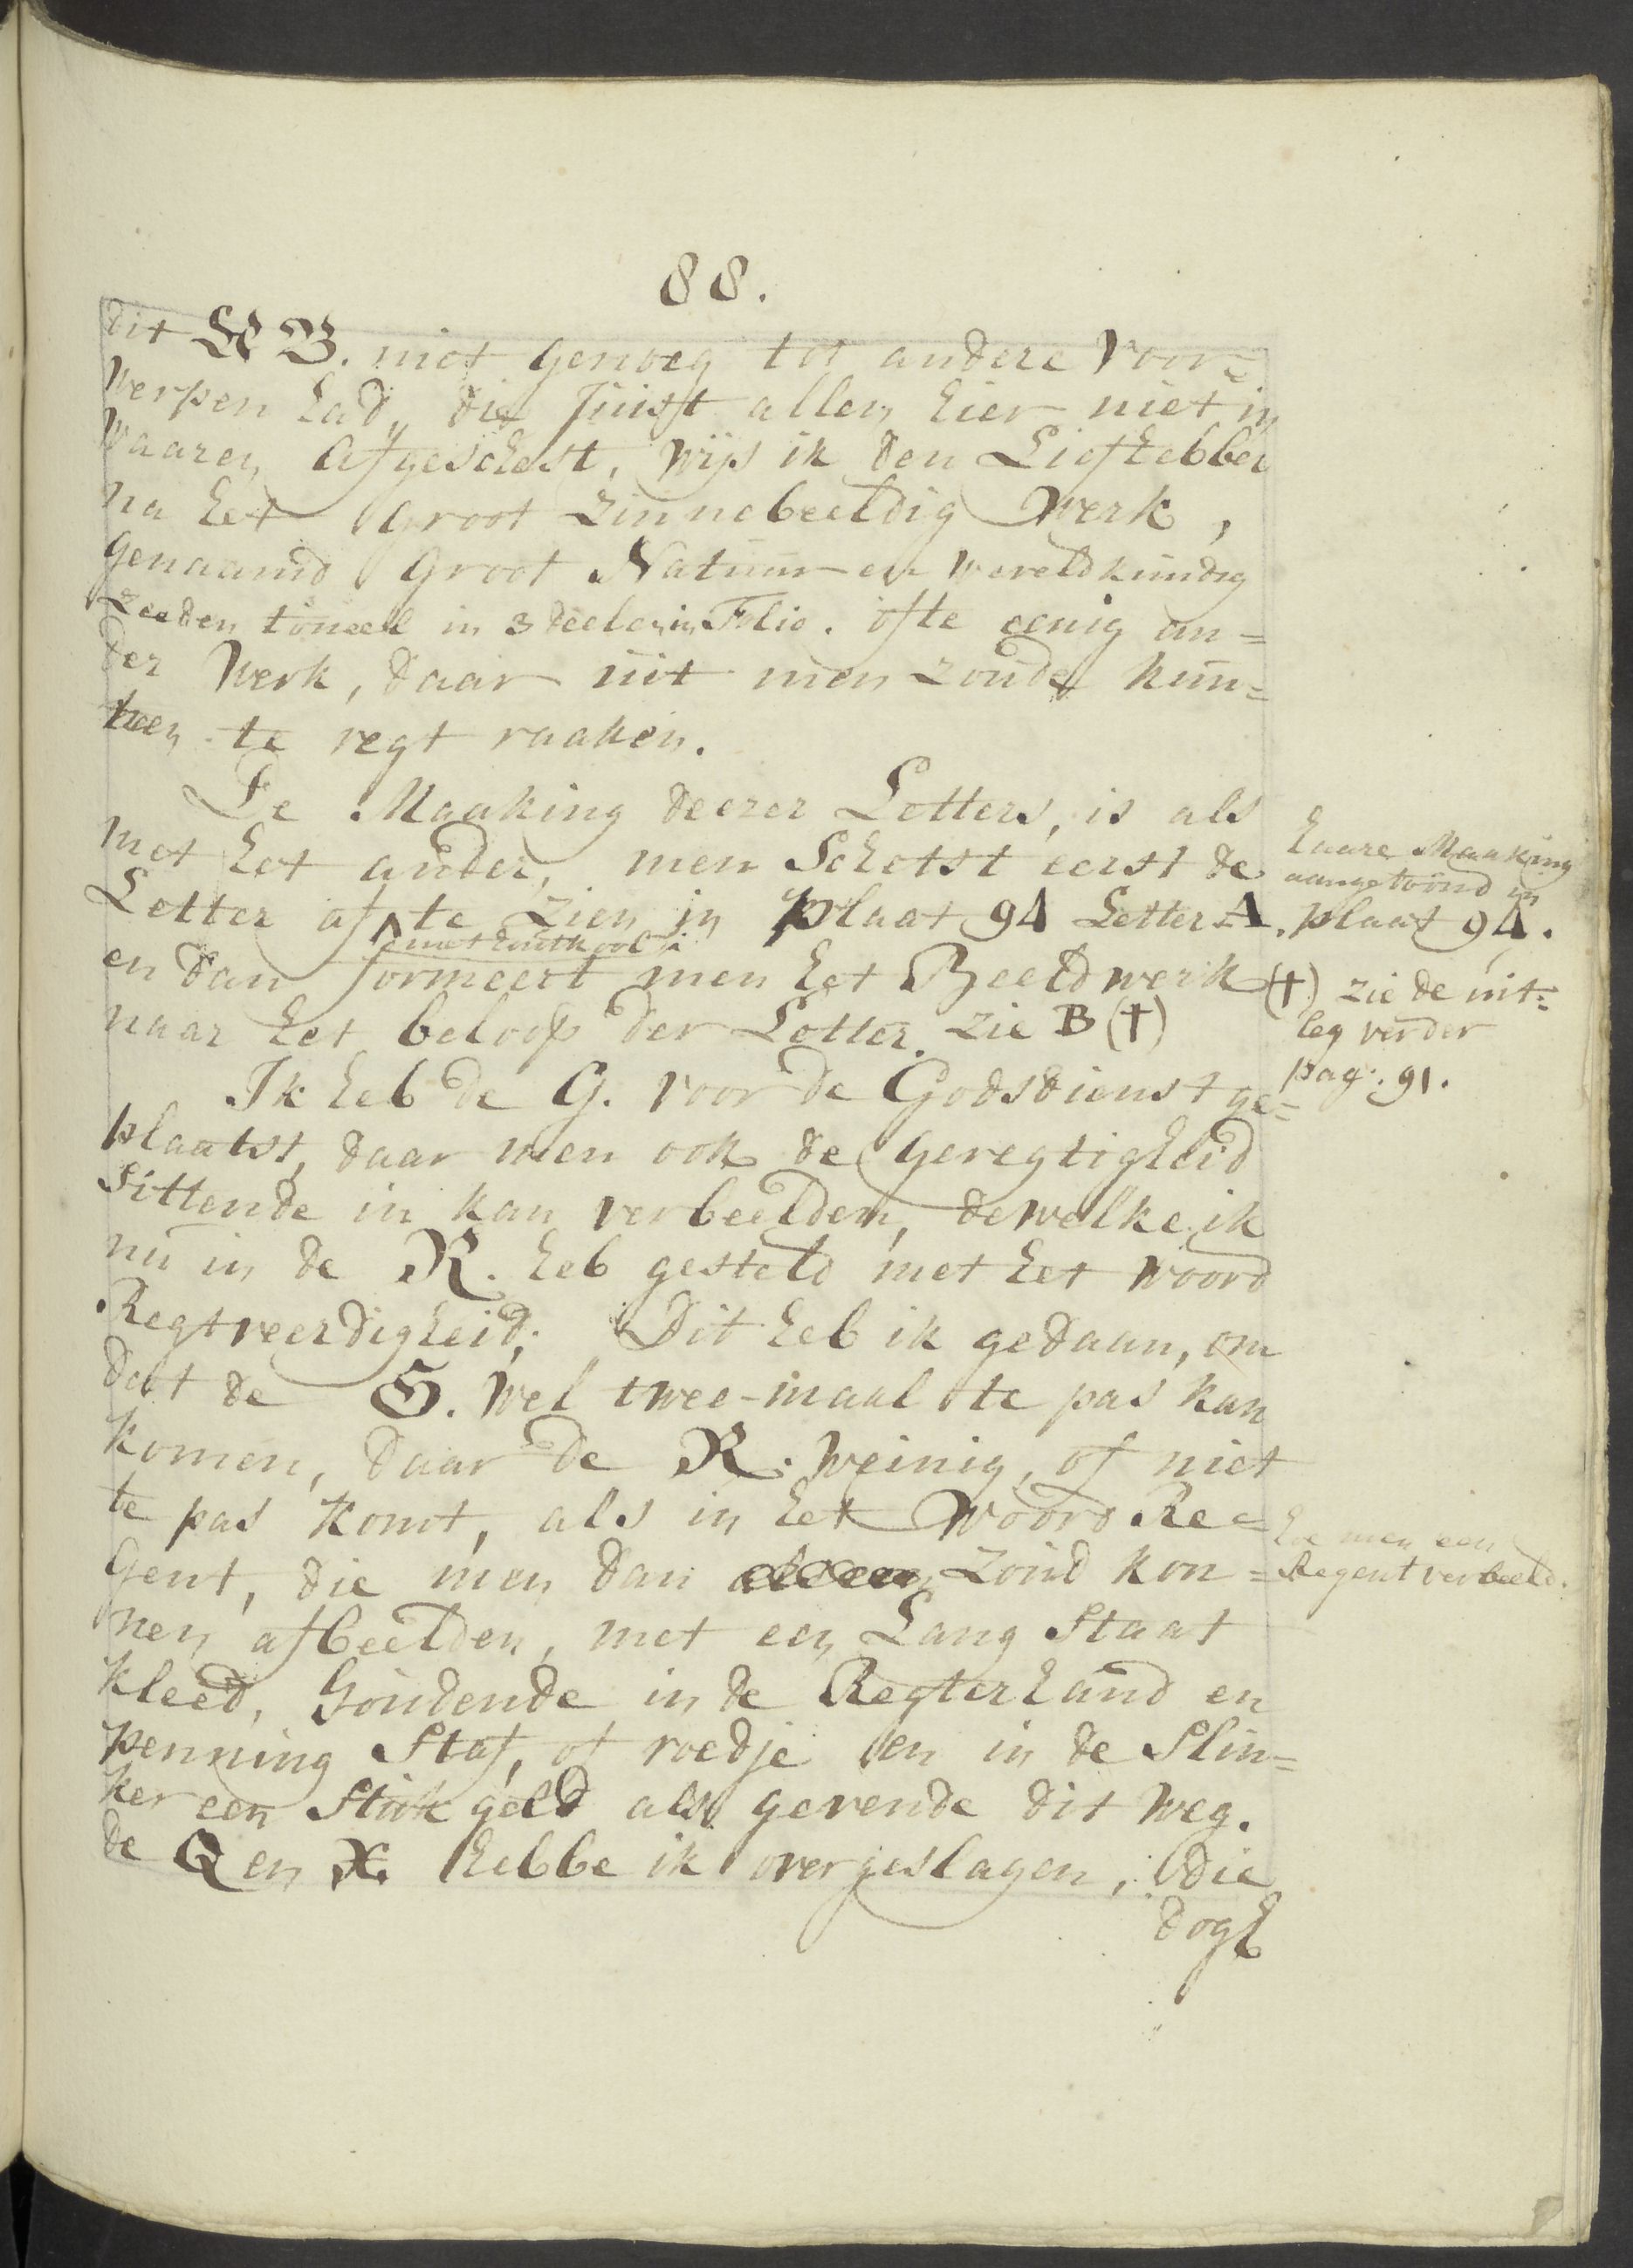 88.
dit AB. niet genoeg tot andere Voor=
werpen had, die Juist allen hier niet in
waaren afgeschest, wijs ik den Liefhebber
na het groot Zinnebeeldig Werk,
genaamd Groot Natuur en Wereldkundig
Zeeden toneel in 3 deelen in Folio. ofte eenig an=
der Werk, daar uit men zoude kun=
nen te regt raaken.
De Maaking deezer Letters, is als
met het ander, men Schetst eerst de
Letter af te zien in plaat 94 Letter A.
met houtkool
en dan formeert men het Beeldwerk
naar het beloop der Letter. zie B (†)
Ik heb de G. voor de Godsdienst ge=
plaatst, daar men ook de geregtigheid
sittende in kan verbeelden, dewelke ik
nu in de R. heb gesteld met het woord
Regtveerdigheid; Dit heb ik gedaan, om
dat de G. wel twee-maal te pas kan
komen, daar de R. weinig, of niet
te pas komt, als in het woord Re=
gent, die men dan zoud kon=
nen afbeelden, met een Lang Staat
kleed, houdende in de Regterhand en
penning Staf, of roedje en in de Slin=
ker een Stuk geld als gevende dit weg.
de Q en X. hebbe ik overgeslagen, die
dogh
haare Maaking
aangetoond in
plaat 94.
(†) zie de uit=
leg verder
pag. 91.
hoe men een
Regent verbeeld.